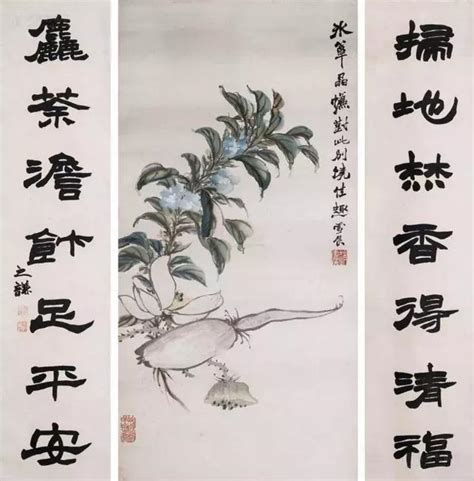 掃地焚香得清福
冰簟晶對此別饒佳趣
麤茶澹飰足平安
之謙